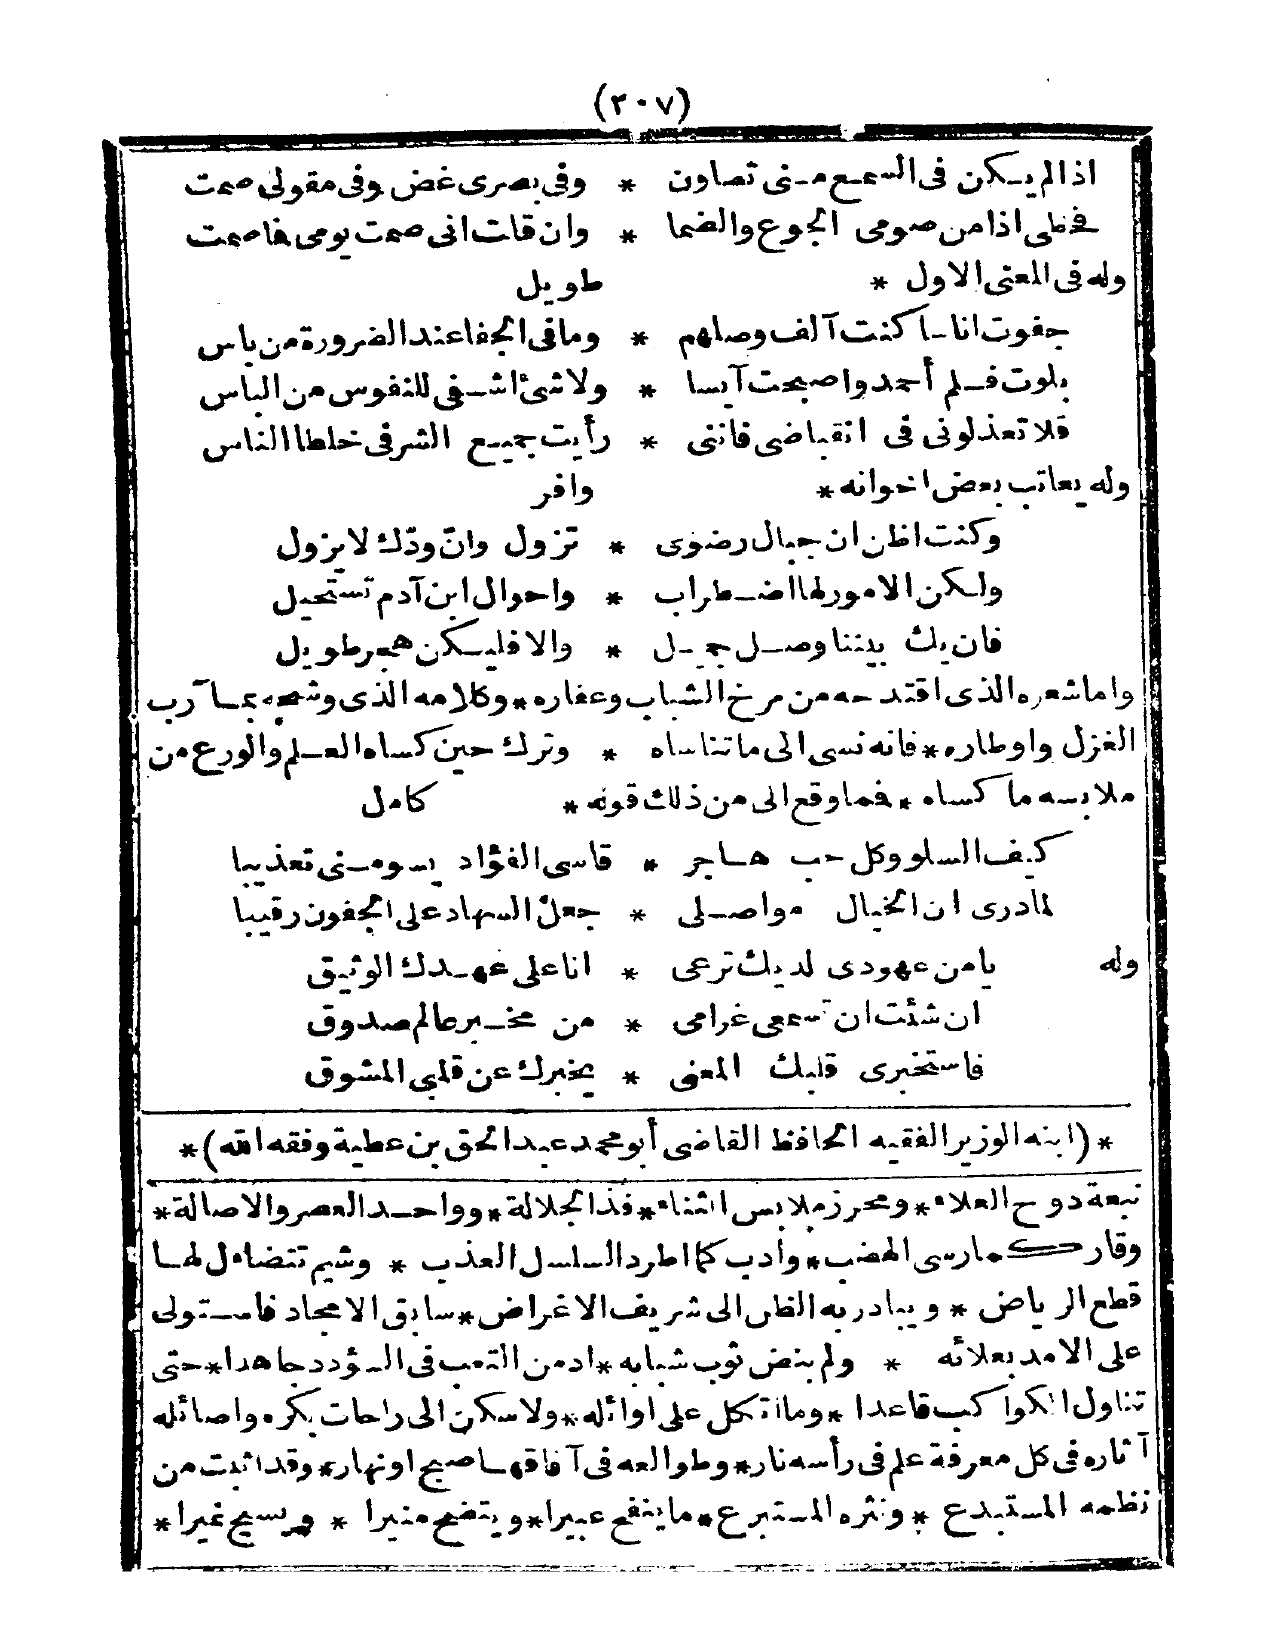 (٢٠٧)
اذا لم يكن فى السمع منى تصاون * وفى بصرى غض وفى مقولى صمت
فحظى اذا من صومى الجوع والضما * وان قلت انى صمت يومى فما صمت
وله فى المعنى الاول * طويل
جفوت اناسا كنت آلف وصلهم * وما فى الجفا عند الضرورة من باس
بلوت فلم أحمد واصبحت آيسا * ولا شئ اشفى للنفوس من الياس
فلا تعذلونى فى انقباضى فاننى * رأيت جميع الشر فى خلطا الناس
وله يعاتب بعض اخوانه * وافر
وكنت اظن ان جبال رضوى * تزول وانّ ودّك لا يزول
ولكن الامور لها اضطراب * واحوال ابن آدم تستحيل
فان يك بيننا وصل جميل * والا فليكن هجر طويل
واما شعره الذى اقتدحه من مرخ الشباب وعفاره * وكلامه الذى وشحه بمآرب
الغزل واوطاره * فانه نسى الى ما تناساه * وترك حين كساه العلم والورع من
ملابسه ما كساه * فما وقع الى من ذلك قوله * كامل
كيف السلو وكل حب هاجر * قاسى الفؤاد يسومنى تعذيبا
لما درى ان الخيال مواصلى * جعل السهاد على الجفون رقيبا
وله يا من عهودى لديك ترعى * انا على عهدك الوثيق
ان شئت ان تسمعى غرامى * من مخبر عالم صدوق
فاستخبرى قلبك المعنى * يخبرك عن قلبى المشوق
* (ابنه الوزير الفقيه الحافظ القاضى أبو محمد عبد الحق بن عطية وفقه الله) *
نبعة دوح العلاء * ومحرز ملابس الثناء * فذ الجلالة * وواحد العصر والاصالة *
وقار كما رسى الهضب * وأدب كما اطرد السلسل العذب * وشيم تتضاءل لها
قطع الرياض * ويبادر به الظن الى شريف الاغراض * سابق الامجاد فاستولى
على الامد بعلائه * ولم ينض ثوب شبابه * ادمن التعب فى السؤدد جاهدا * حتى
تناول الكواكب قاعدا * وما اتكل على اوائله * ولا سكن الى راحات بكره واصائله
آثاره فى كل معرفة علم فى رأسه نار * وطوالعه فى آفاقها صبح او نهار * وقد اثبت من
نظمه المستبدع * ونثره المستبرع * ما ينفح عبيرا * ويتضح منيرا * ويسيح نميرا *